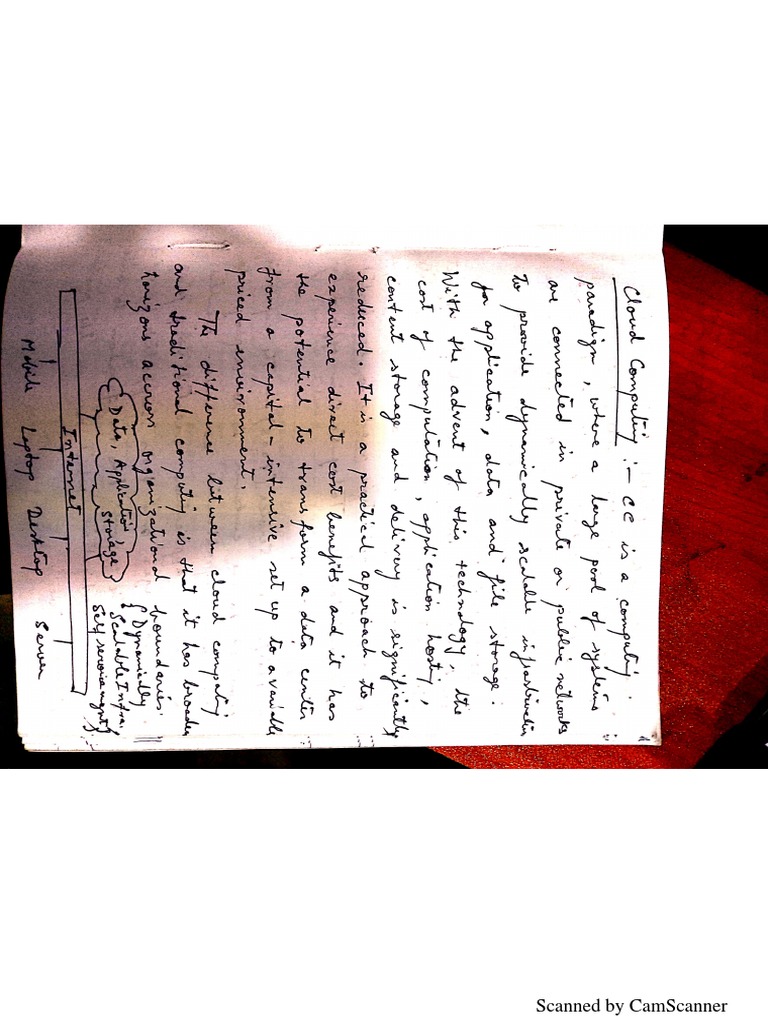 Cloud Computing :- CC is a computing
paradigm, where a large pool of systems
are connected in private or public networks
to provide dynamically scalable infrastructure
for application, data and file storage.
With the advent of this technology, the
cost of computation, application hosting,
content storage and delivery is significantly
reduced. It is a practical approach to
experience direct cost benefits and it has
the potential to transform a data center
from a capital-intensive set up to a variable
priced environment.
The difference between cloud computing
and traditional computing is that it has broader
horizons accross organizational boundaries.
Data, Application
Storage
{ Dynamically
Scalable Infra,
Self service mgmt }
Internet
Mobile Laptop Desktop Server
Scanned by CamScanner